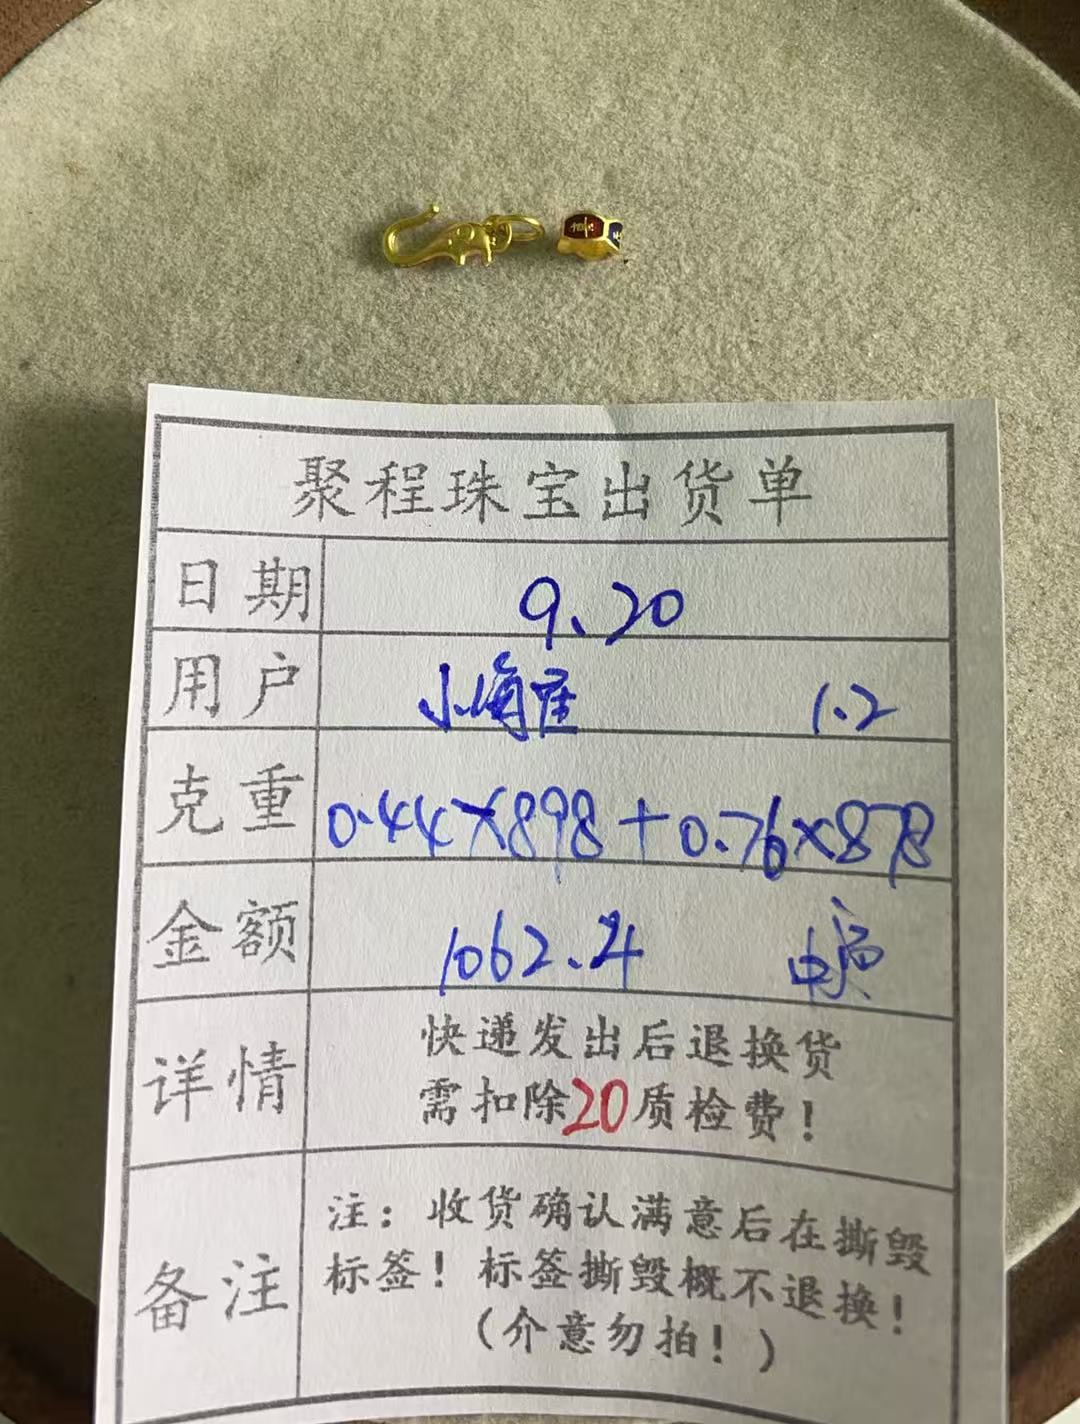 聚程珠宝出货单
日期 9.20
用户 小角座 1.2
克重 0.44×898+0.76×878
金额 1062.4
详情 快递发出后退换货
需扣除20质检费！
备注 注：收货确认满意后在撕毁
标签！标签撕毁概不退换！
（介意勿拍！）